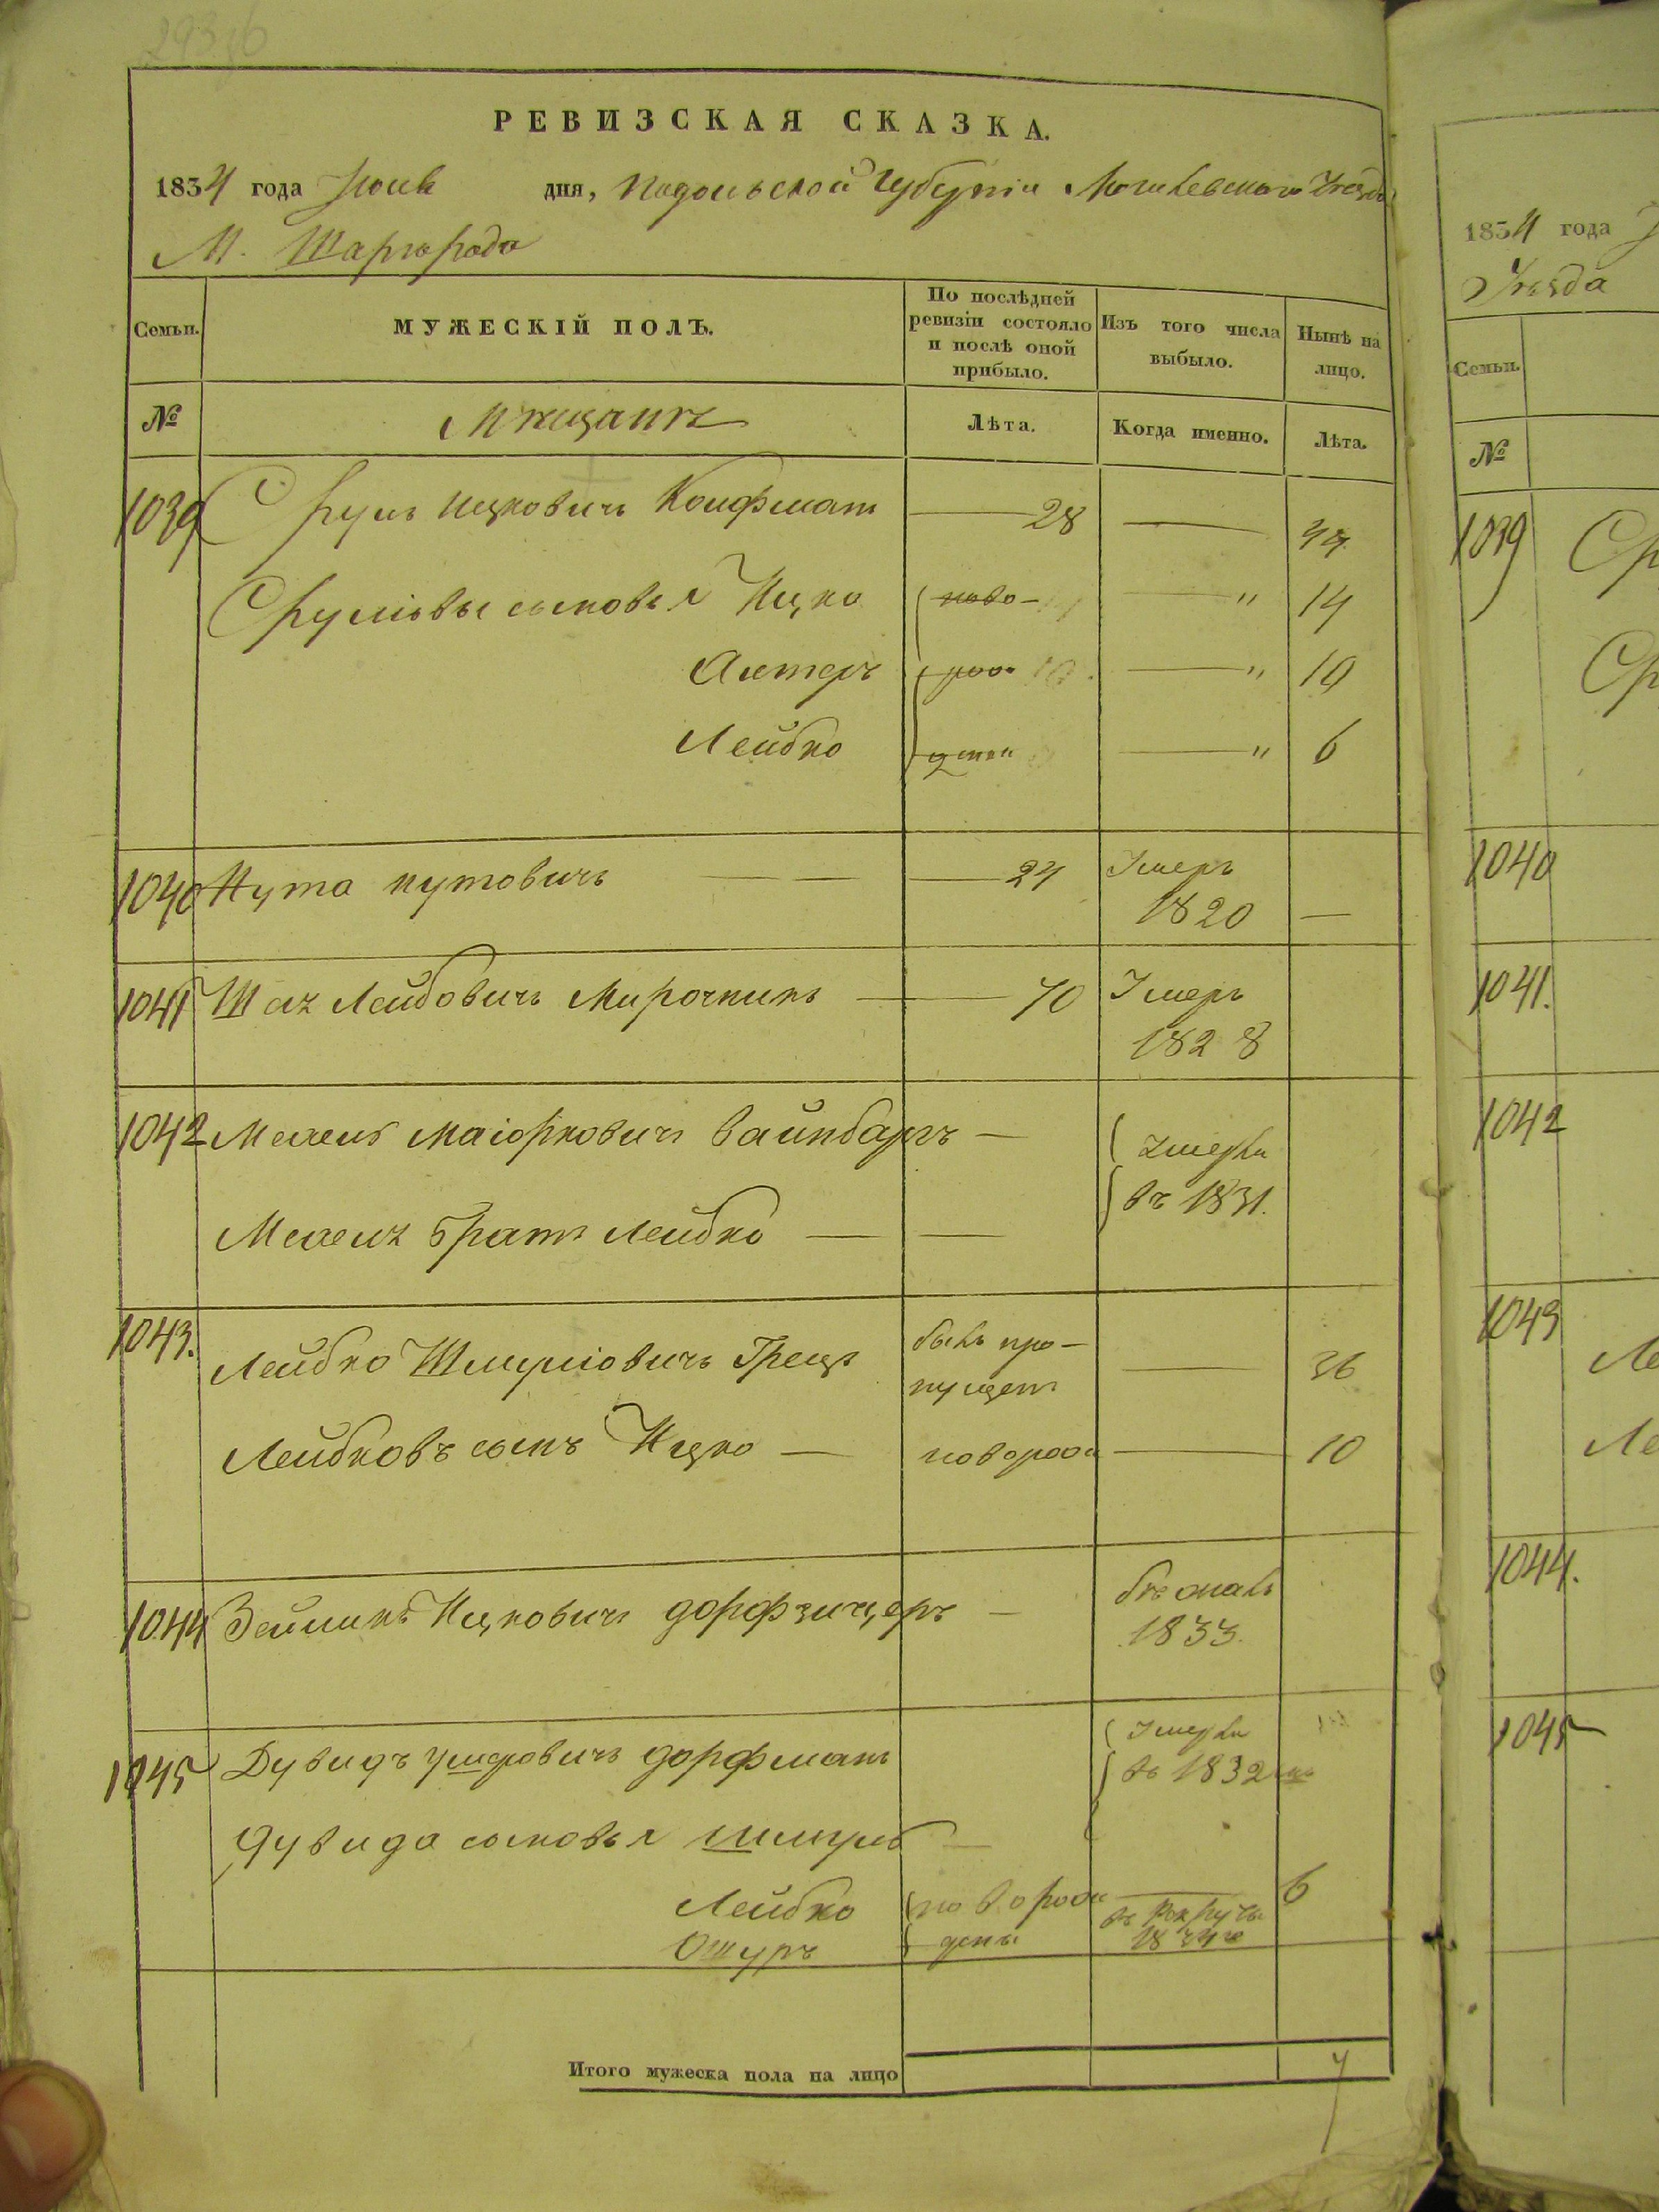 РЕВИЗСКАЯ СКАЗКА.
1834 года Іюня дня, Подольской Губерніи Могилевского Уезда
М. Шаргрода
Семьи. МУЖЕСКІЙ ПОЛЪ. По послѣдней ревизіи состояло и послѣ оной прибыло. Изъ того числа выбыло. Нынѣ на лицо.
№ Мѣщанѣ Лѣта. Когда именно. Лѣта.
1039 Сруль Ицковичъ Койфманъ 28 — 44
Срулівы сыновья Ицко ново- — " 14
Алтеръ рож — " 10
Лейбко — " 6
1040 Нута Нутовичъ — — — 24 Умеръ
1820 —
1041 Шая Лейбовичъ Мирочникъ — 70 Умеръ
1828
1042 Мехель Маіорковичъ Вайнбаргъ — Умерли
въ 1831.
Мехеля братъ Лейбко — —
1043. Лейбко Шмуліовичъ Грецъ былъ про-
пущенъ — 36
Лейбковъ сынъ Ицко — новорож — 10
1044 Зейликъ Ицковичъ дорфзицеръ — бежалъ
1833.
1045 Дувидъ дорфманъ Умерли
въ 1832
Дувида сыновья Шмуль —
Лейбко новорож — 6
Ошуръ дены въ Рекруты
1834
Итого мужеска пола на лицо 7
1834 года
Уезда
Семьи.
№
1039 Ср
Ср
1040
1041.
1042
1043 Ле
Ле
1044.
1045